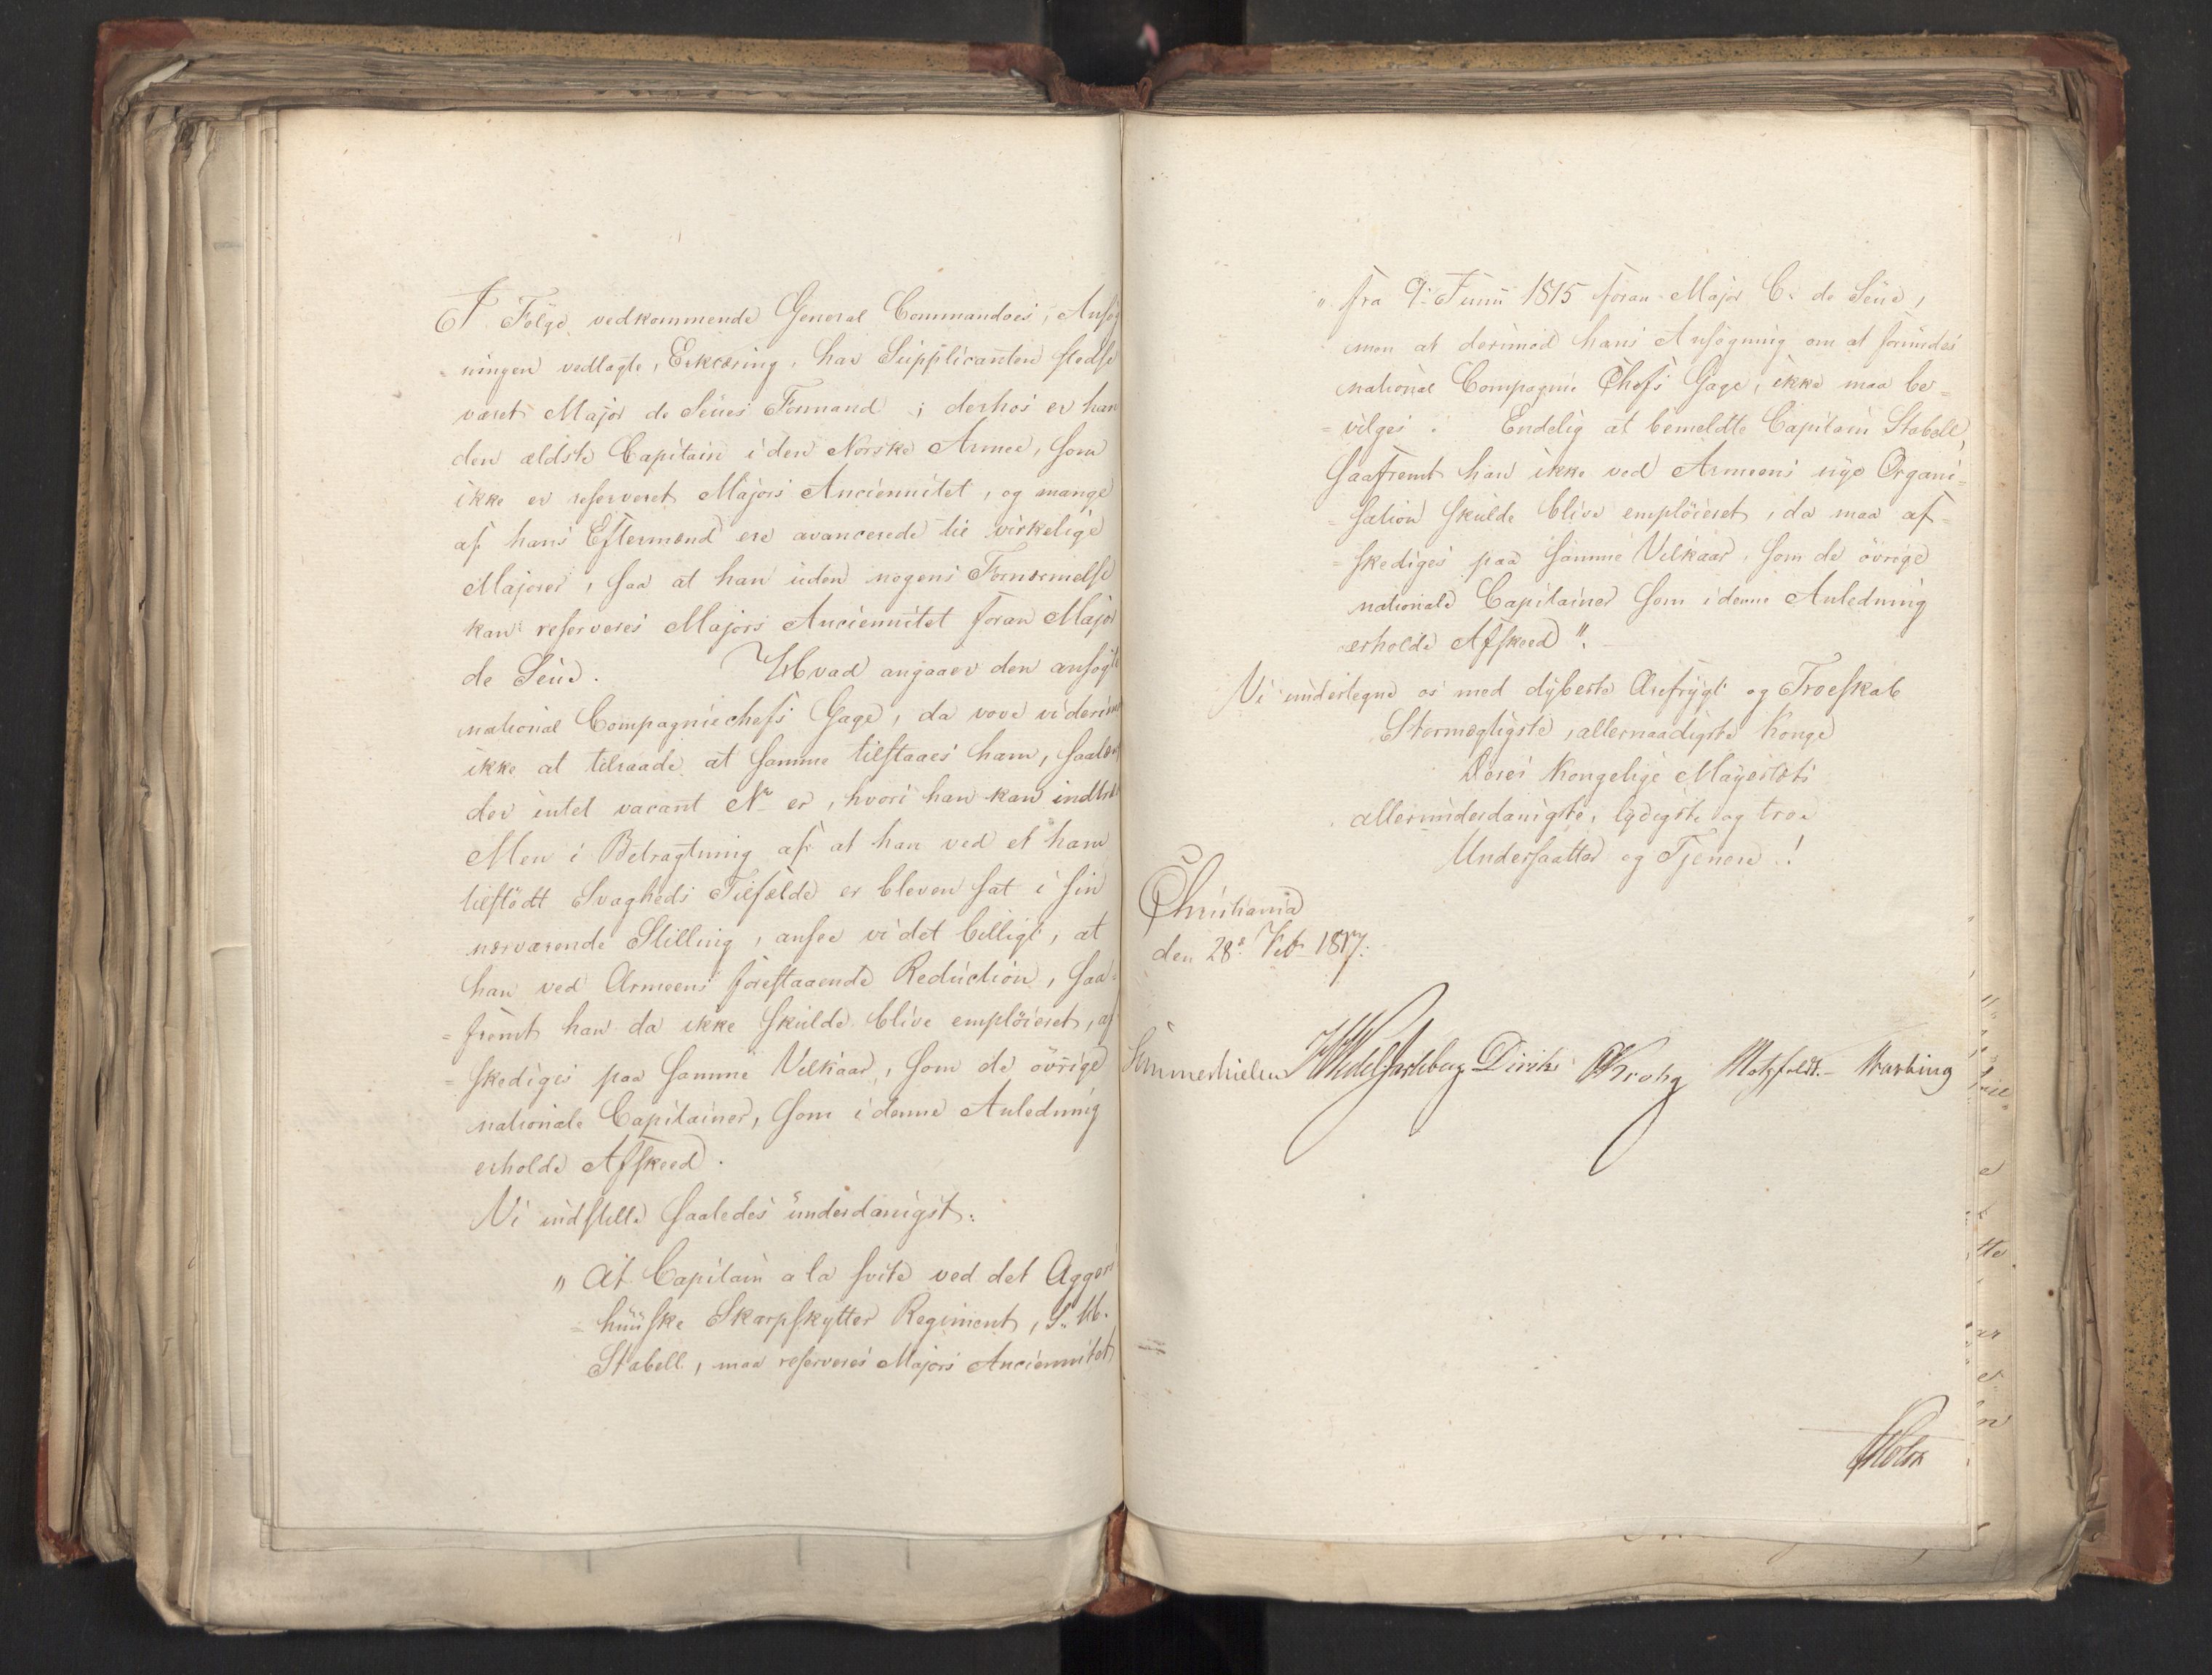 I Følge vedkommende General Commandoes, Ansøg
ningen vedlagte, Erklæring, har Supplicanten stedse
været Major de Seües Formand ; derhos er han
den ældste Capitain i den Norske Armee, som
ikke er reserveret Majors Anciennitet, og mange
af hans Eftermænd ere avancerede til virkelige
Majorer, saa at han uden nogens Fornærmelse
kan reserveres Majors Anciennitet foran Major
de Seüe. Hvad angaaer den ansøgte
national Compagniechefs Gage, da vove vi derimod
ikke at tilraade at samme tilstaaes ham, saalænge
der intet vacant No er, hvori han kan indtræde
Men i Betragtning af at han ved et ham
tilstødt Svagheds Tilfælde er bleven sat i sin
nærværende Stilling, ansee vi det billigt, at
han ved Armeens forestaaende Reduction, saa-
=fremt han da ikke skulde blive emploieret, af
=skediges paa samme Vilkaar, som de øvrige
nationale Capitainer, som i denne Anledning
erholde Afskeed.
Vi indstille saaledes underdanigst:
" At Capitain a la svite ved det Aggers
=huusske Skarpskytter Regiment, S. H.
Stabell, maa reserveres Majors Anciennitet
" fra 9. Junii 1815 foran Major C. de Seüe,
men at derimod hans Ansøgning om at forundes
national Compagnie Chefs Gage, ikke maa be=
=vilges. Endelig at bemeldte Capitain Stabell,
saafremt han ikke ved Armeens nye Organi=
=sation skulde blive emploieret, da maa af=
=skediges paa samme Vilkaar, som de øvrige
nationale Capitainer som i denne Anledning
erholde Afskeed".
Vi undertegne os med dybeste Ærefrygt og Troeskab
Stormægtigste, allernaadigste Konge
Deres Kongelige Mayestæts
allerunderdanigste, lydigste og troe
Undersaatter og Tjenere !
Christiania
den 28de Febr 1817.
Sommerhielm Diriks Krohg Motzfeldt. Vrarhing
Holst